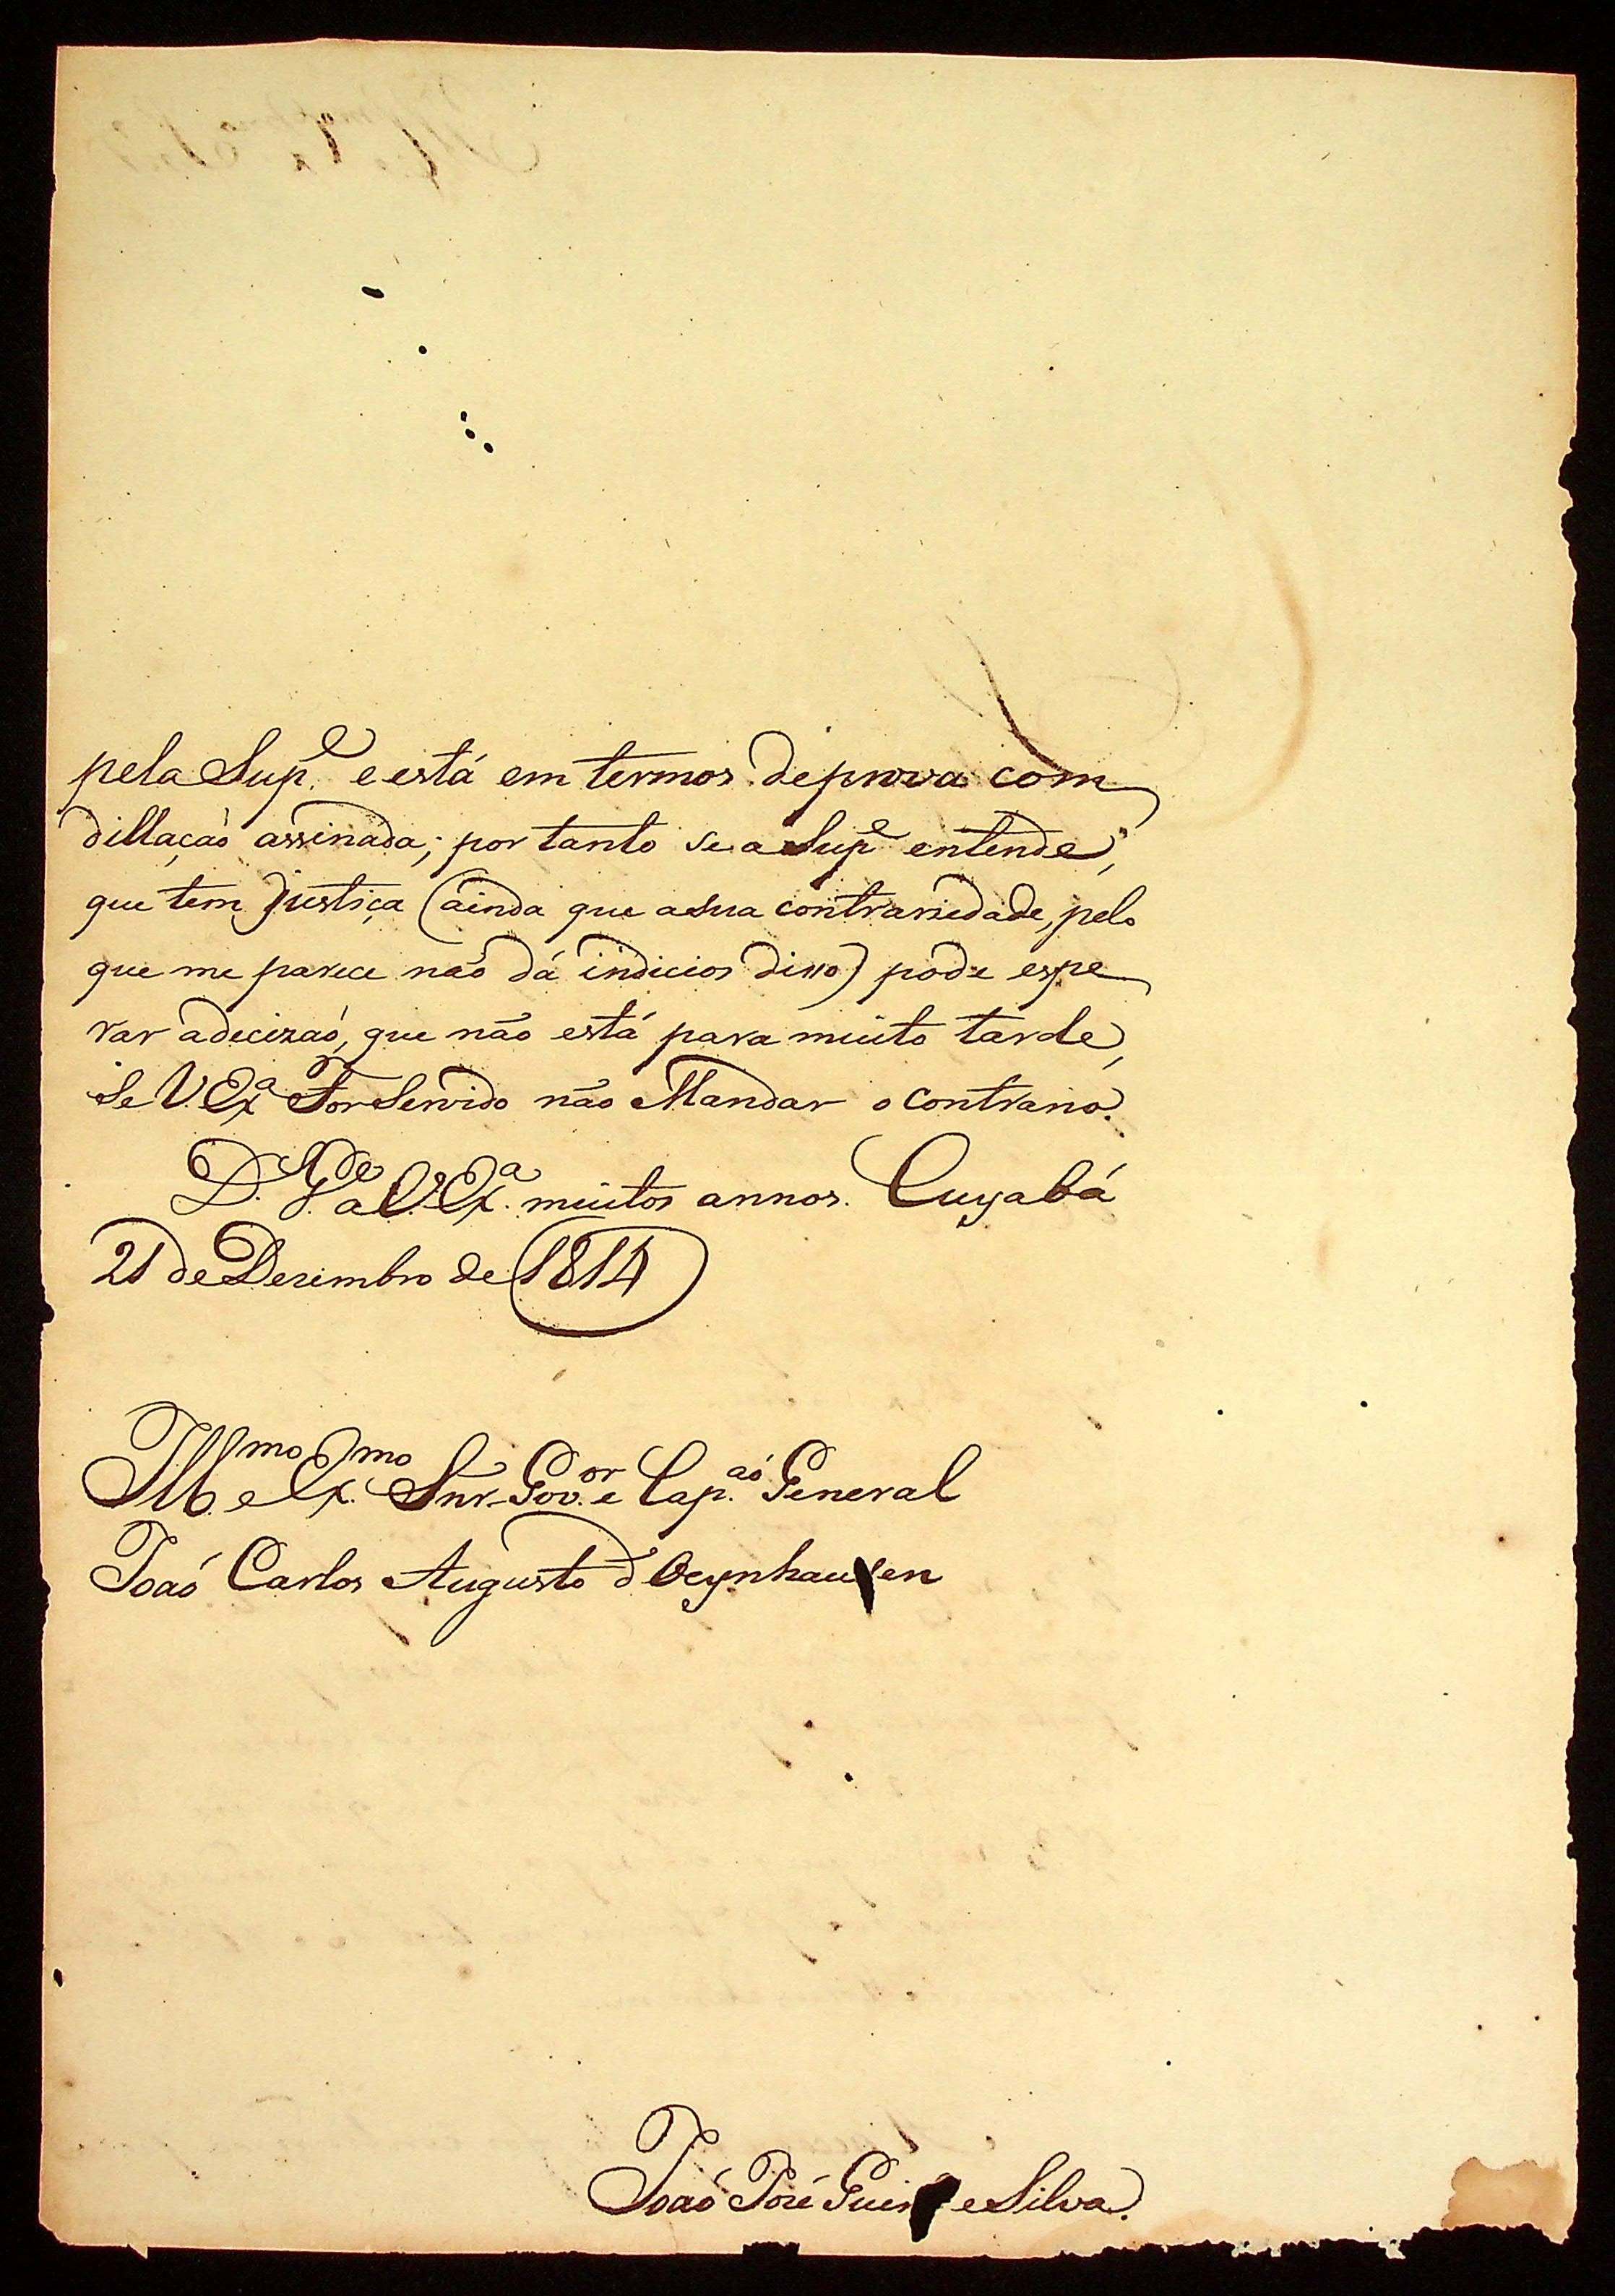 pela Sup.e e está em termos de prova com
dillação assinada; por tanto se a Sup.e entende,
que tem Justiça (ainda que a sua contrariedade, pelo
que me parece não dá indicios disso) pode espe
rar a decizaõ, que não está para muito tarde,
se V. Ex.a For Servido não Mandar o contrario.
D. G.de a V. Ex.a muitos annos. Cuyabá
21 de Dezembro de 1814
Ill.mo e Ex.mo Snr. Gov.or e Cap.aõ General
Joaõ Carlos Augusto d'Oeynhausen
Joaõ José Guim e Silva.